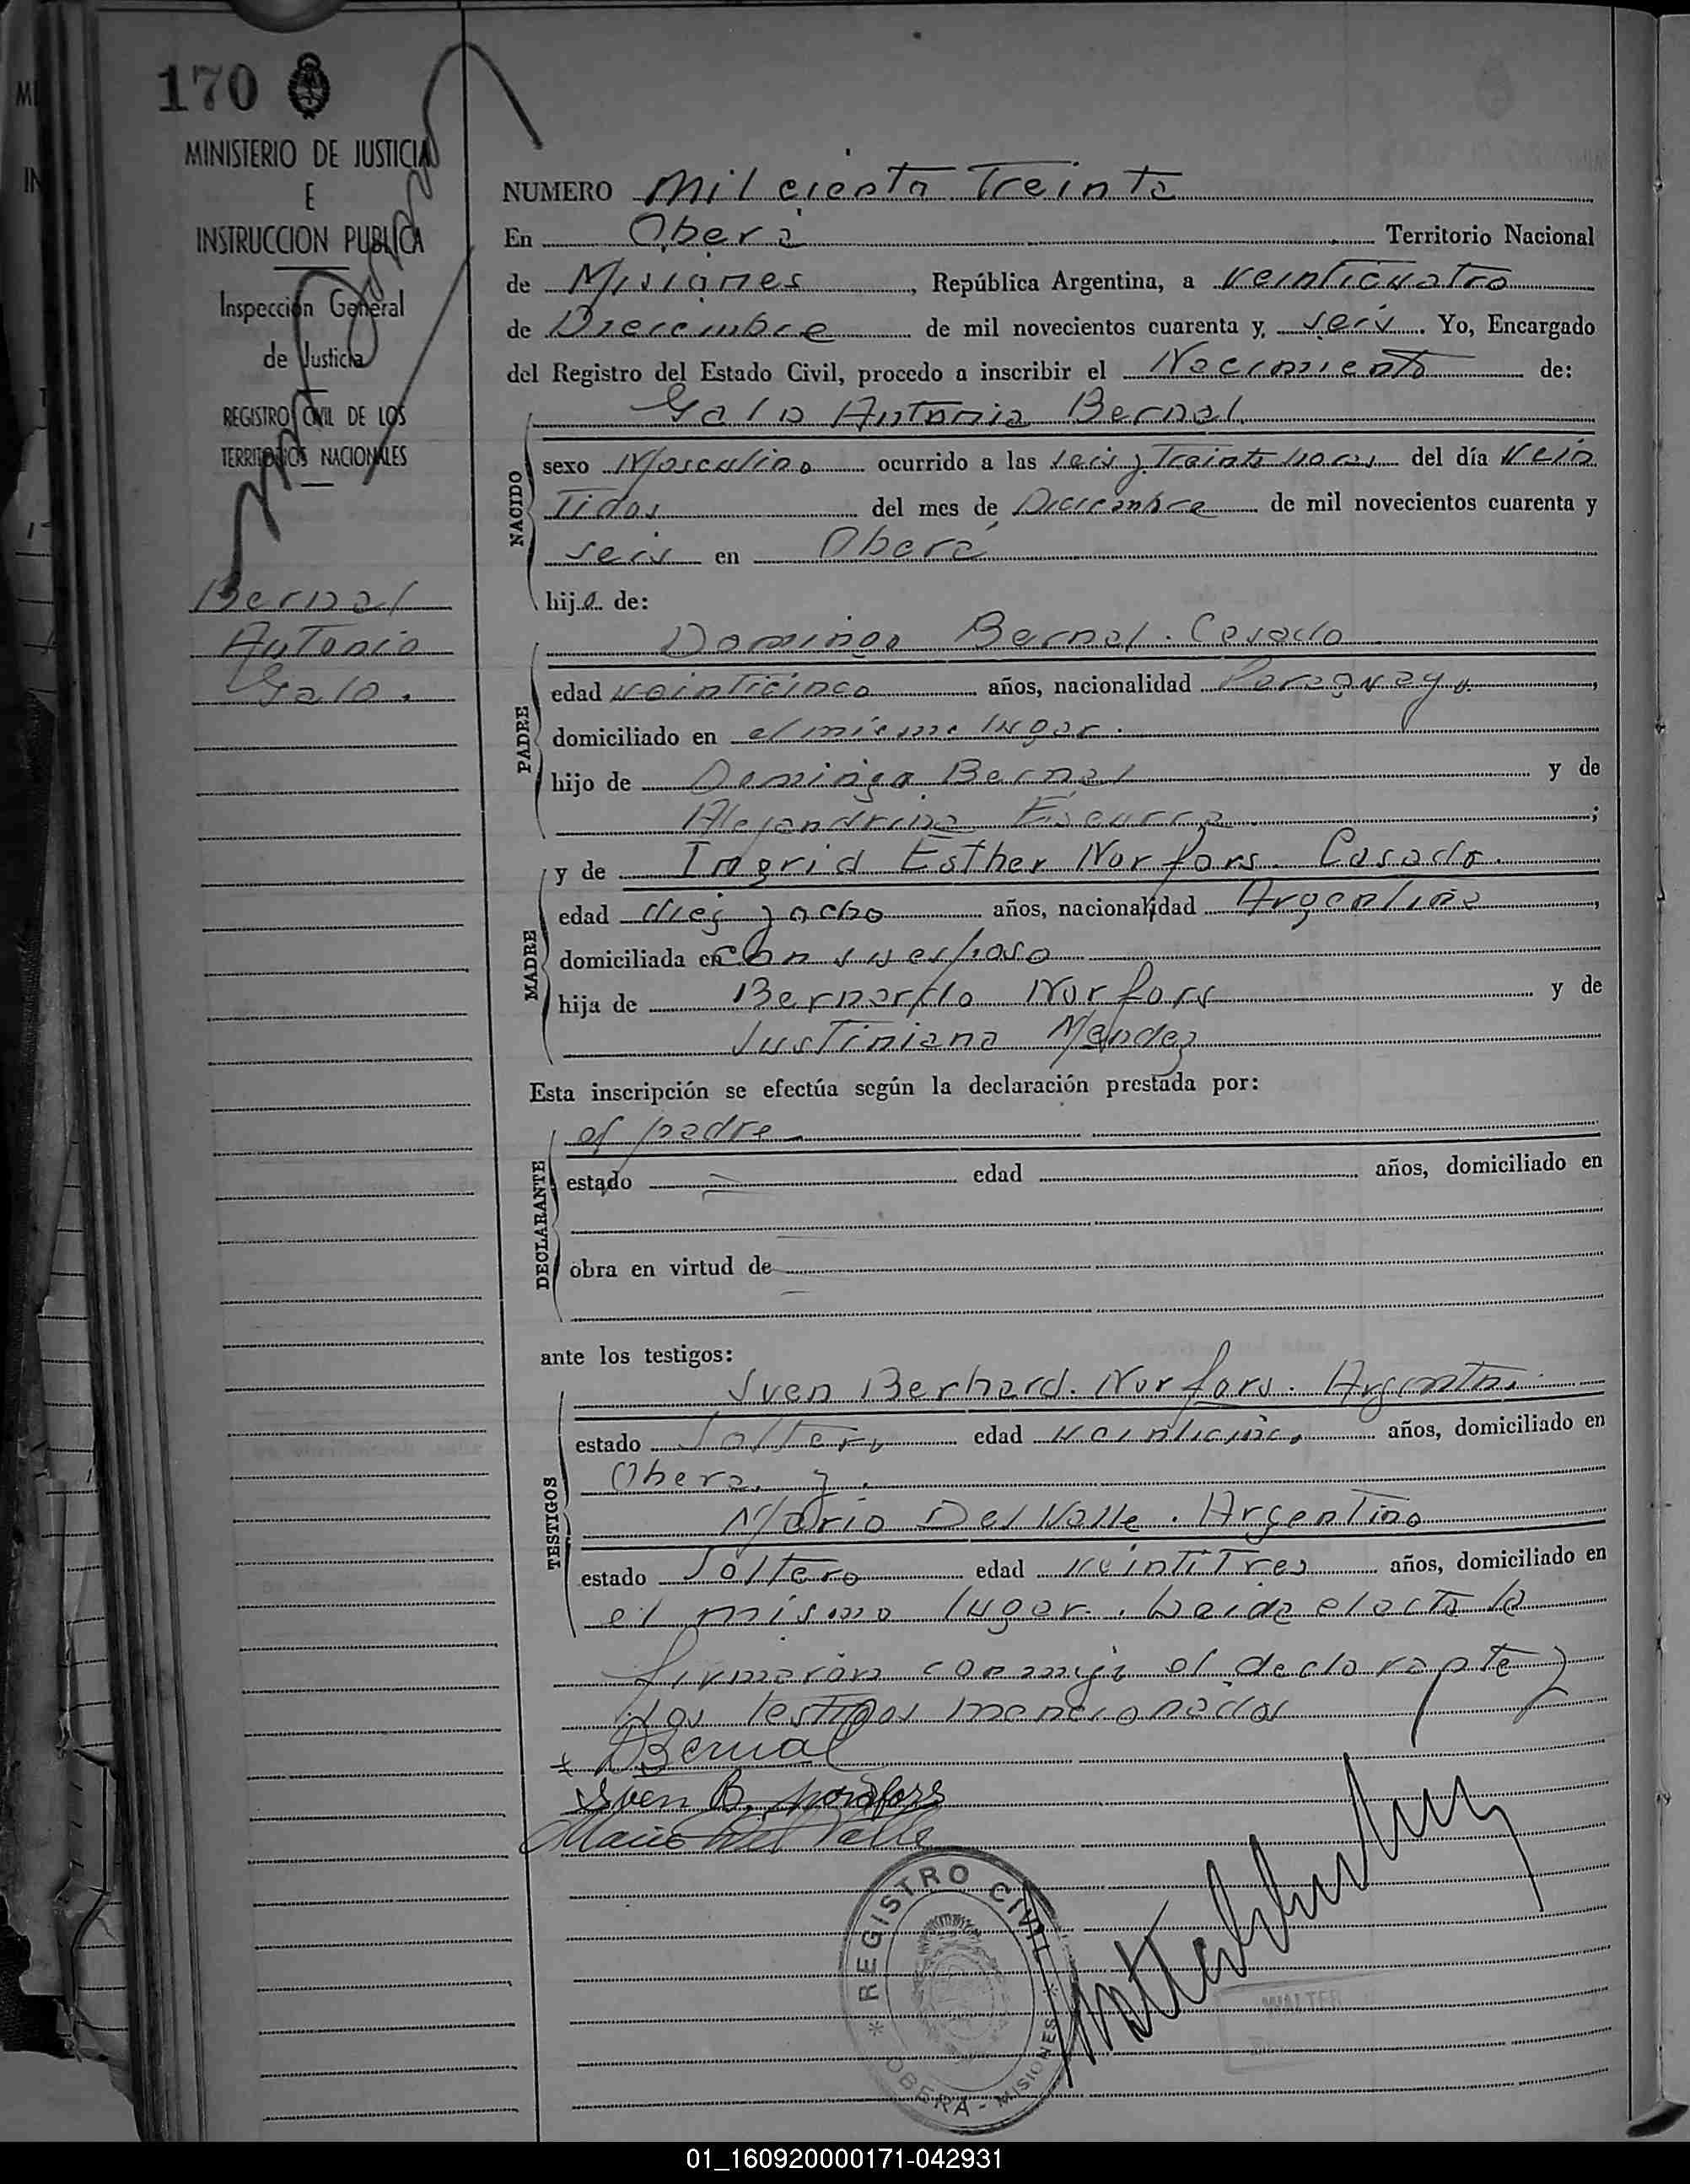 170
MINISTERIO DE JUSTICIA
E
INSTRUCCION PUBLICA
Inspección General
de Justicia
REGISTRO CIVIL DE LOS
TERRITORIOS NACIONALES
Bernal
Antonio
Galo.
NUMERO Mil ciento Treinta
En Oberá Territorio Nacional
de Misiones, República Argentina, a veinticuatro
de Diciembre de mil novecientos cuarenta y seis. Yo, Encargado
del Registro del Estado Civil, procedo a inscribir el Nacimiento de:
Galo Antonio Bernal
NACIDO
sexo Masculino ocurrido a las seis y Treinta horas del día Vein
Tidos del mes de Diciembre de mil novecientos cuarenta y
seis en Oberá
hijo de:
PADRE
Domingo Bernal. Casado
edad veinticinco años, nacionalidad Paraguayo,
domiciliado en el mismo lugar.
hijo de Domingo Bernal y de
Alejandrina ;
MADRE
y de Ingrid Esther Norfors. Casada.
edad diez y ocho años, nacionalidad Argentina,
domiciliada en con su esposo
hija de Bernardo Norfors y de
Justiniana Mendez
Esta inscripción se efectúa según la declaración prestada por:
DECLARANTE
el padre
estado edad años, domiciliado en
obra en virtud de
ante los testigos:
TESTIGOS
Sven Bernard. Norfors. Argentino.
estado Soltero edad años, domiciliado en
Obera. y.
Mario Del Valle. Argentino
estado Soltero edad veintiTres años, domiciliado en
el mismo lugar. Leida el acta la
firmaron conmigo el declarante y
los testigos mencionados
DBernal
Sven B. Nordfors
Mario Del Valle
REGISTRO CIVIL
* OBERA - MISIONES *
WALTER
01_160920000171-042931